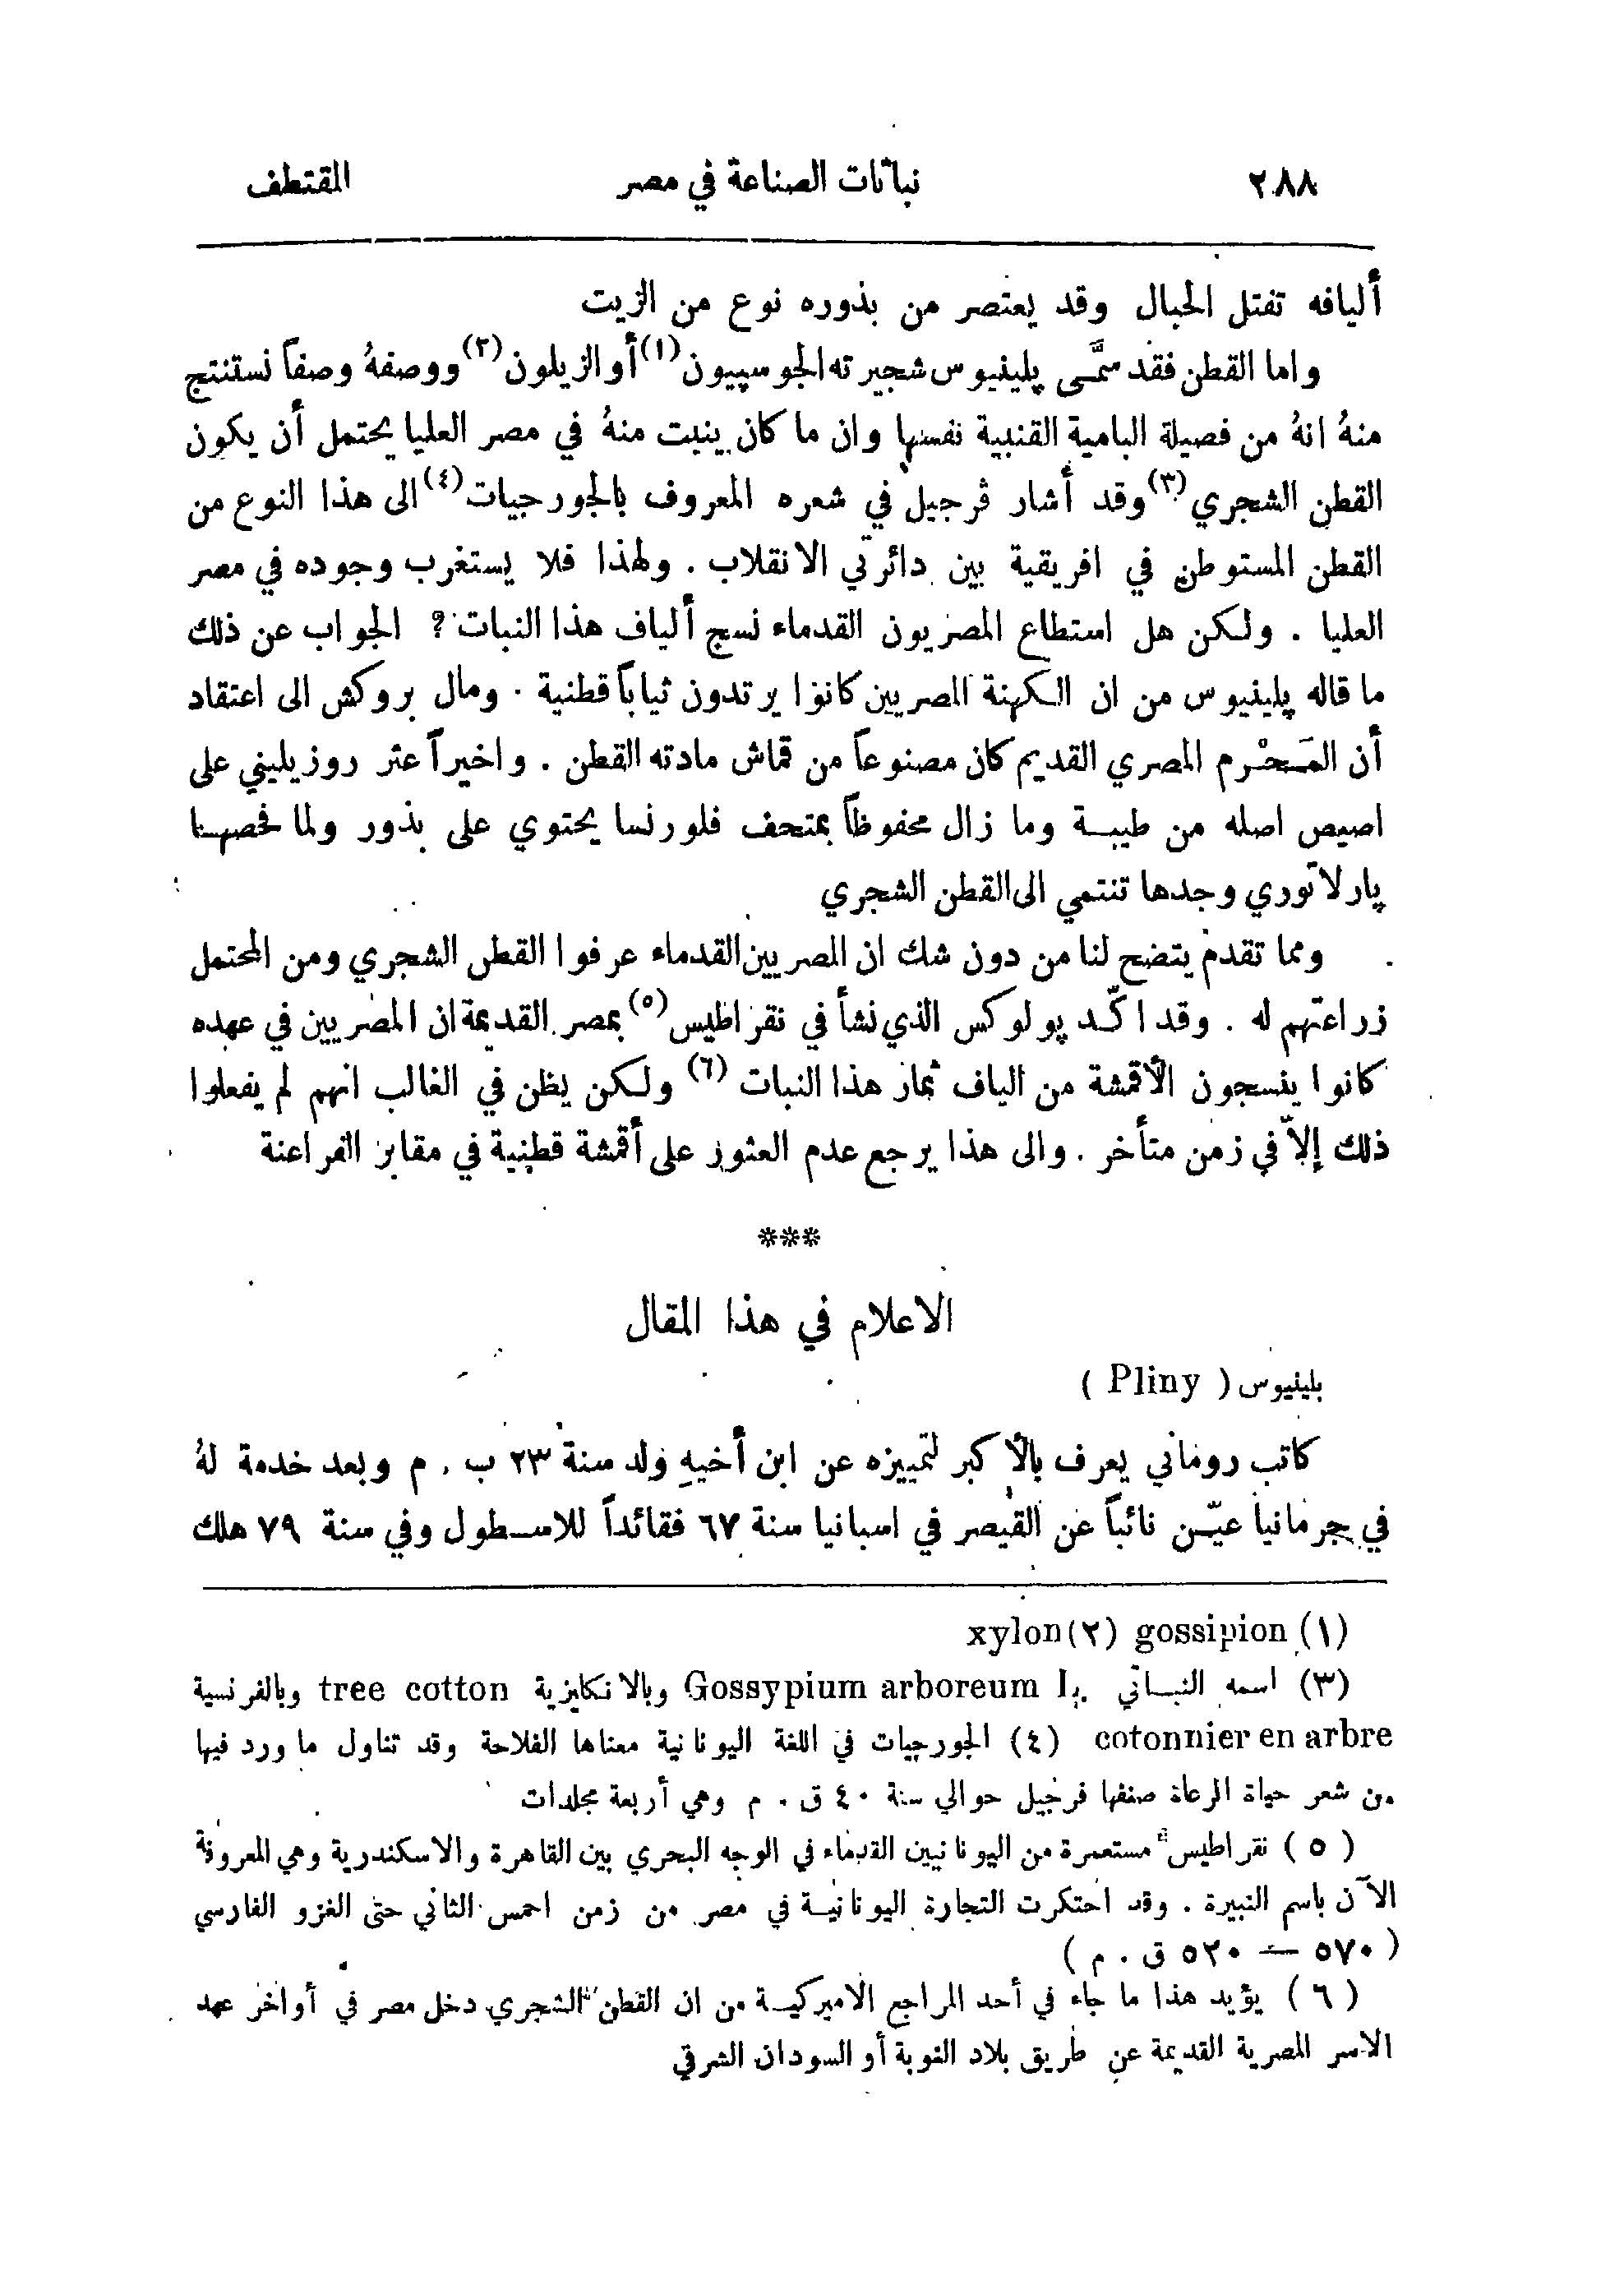 ٢٨٨ نباتات الصناعة في مصر المقتطف
أليافه تفتل الحبال وقد يعتصر من بذوره نوع من الزيت
واما القطن فقد سمَّى پلينيوس شجيرته الجوسپيون(١) أو الزيلون(٢) ووصفهُ وصفاً نستنتج
منهُ انهُ من فصيلة البامية القنبية نفسها وان ما كان ينبت منهُ في مصر العليا يحتمل أن يكون
القطن الشجري(٣) وقد أشار ڤرجيل في شعره المعروف بالجورجيات(٤) الى هذا النوع من
القطن المستوطن في افريقية بين دائرتي الانقلاب . ولهذا فلا يستغرب وجوده في مصر
العليا . ولكن هل استطاع المصريون القدماء نسج ألياف هذا النبات ؟ الجواب عن ذلك
ما قاله پلينيوس من ان الكهنة المصريين كانوا يرتدون ثياباً قطنية . ومال بروكش الى اعتقاد
أن المَحْرم المصري القديم كان مصنوعاً من قماش مادته القطن . واخيراً عثر روزيليني على
اصيص اصله من طيبة وما زال محفوظاً بمتحف فلورنسا يحتوي على بذور ولما فحصها
پارلاتوري وجدها تنتمي الى القطن الشجري
ومما تقدم يتضح لنا من دون شك ان المصريين القدماء عرفوا القطن الشجري ومن المحتمل
زراعتهم له . وقد اكّد پولوكس الذي نشأ في نقراطيس(٥) بمصر القديمة ان المصريين في عهده
كانوا ينسجون الأقمشة من الياف ثمار هذا النبات (٦) ولكن يظن في الغالب انهم لم يفعلوا
ذلك إلاّ في زمن متأخر . والى هذا يرجع عدم العثور على أقمشة قطنية في مقابر الفراعنة
***
الاعلام في هذا المقال
بلينيوس ( Pliny )
كاتب روماني يعرف بالأكبر لتمييزه عن ابن أخيهِ ولد سنة ٢٣ ب . م وبعد خدمة لهُ
في جرمانيا عيّن نائباً عن القيصر في اسبانيا سنة ٦٧ فقائداً للاسطول وفي سنة ٧٩ هلك
(١) gossipion (٢) xylon
(٣) اسمه النباتي Gossypium arboreum L. وبالانكليزية tree cotton وبالفرنسية
cotonnier en arbre (٤) الجورجيات في اللغة اليونانية معناها الفلاحة وقد تناول ما ورد فيها
من شعر حياة الرعاة صنفها فرجيل حوالي سنة ٤٠ ق . م وهي أربعة مجلدات
(٥) نقراطيس مستعمرة من اليونانيين القدماء في الوجه البحري بين القاهرة والاسكندرية وهي المعروفة
الآن باسم النبيرة . وقد احتكرت التجارة اليونانية في مصر من زمن احمس الثاني حتى الغزو الفارسي
( ٥٧٠ — ٥٢٠ ق . م )
(٦) يؤيد هذا ما جاء في أحد المراجع الاميركية من ان القطن الشجري دخل مصر في أواخر عهد
الاسر المصرية القديمة عن طريق بلاد النوبة أو السودان الشرقي